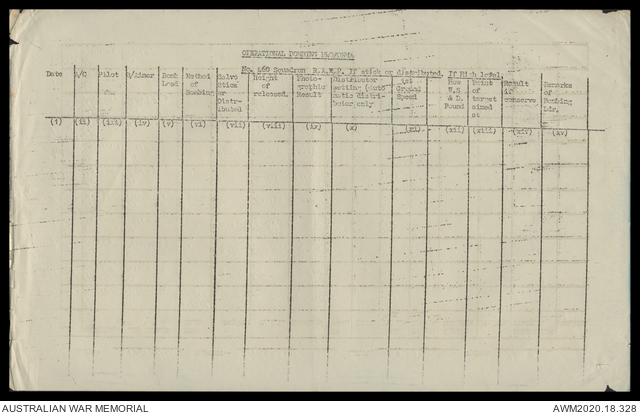 OPERATIONAL BOMBING
No. 460 Squadron R.A.A.F. If stick or distributed. If High level.
Date A/C Pilot B/Aimer Bomb Load Method of Bombing Salvo Stick or Distributed Height of released. Photographic Result Distributor setting (Automatic distributor) only Ground Speed How W.S & D. Found Point of target aimed at Result if conserve Remarks of Bombing Ldr.
(i) (ii) (iii) (iv) (v) (vi) (vii) (viii) (ix) (x) (xi) (xii) (xiii) (xiv) (xv)
AUSTRALIAN WAR MEMORIAL AWM2020.18.328